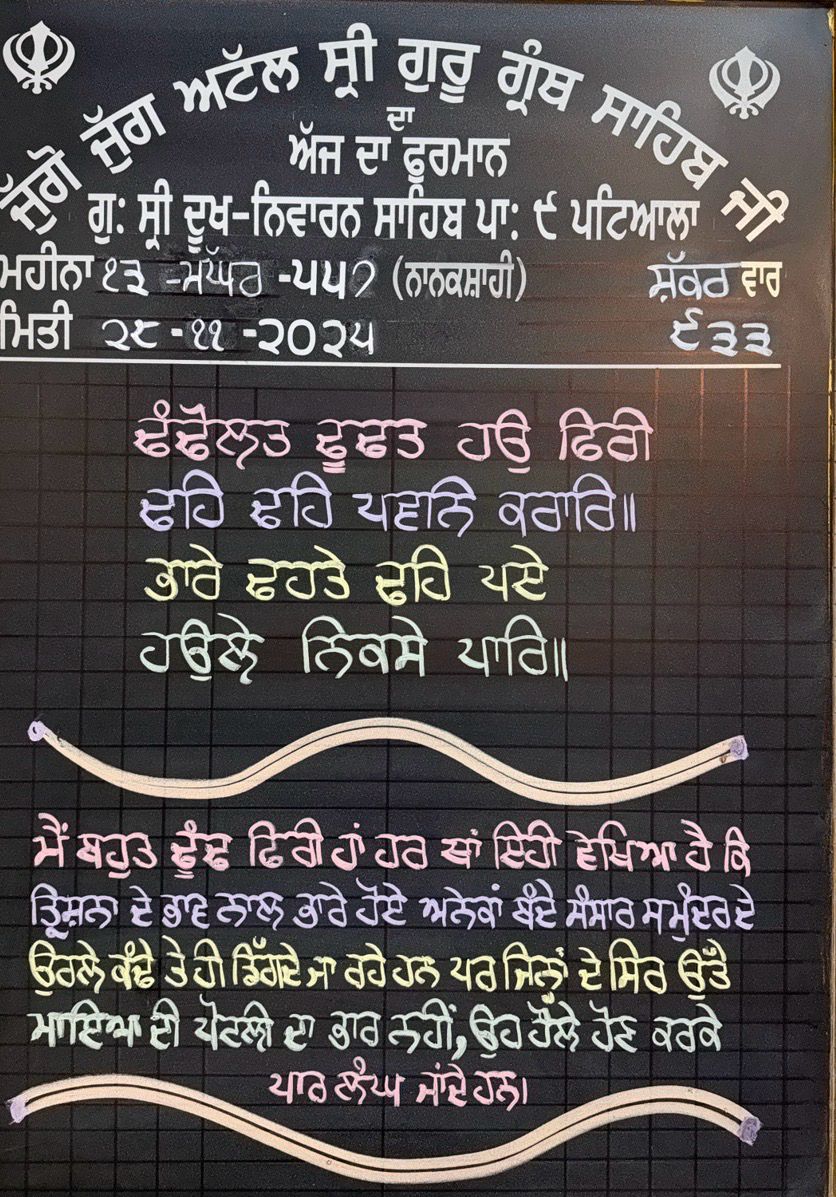 ਜੁੱਗੋ ਜੁੱਗ ਅਟੱਲ ਸ੍ਰੀ ਗੁਰੂ ਗ੍ਰੰਥ ਸਾਹਿਬ ਜੀ
ਦਾ
ਅੱਜ ਦਾ ਫੁਰਮਾਨ
ਗੁ: ਸ੍ਰੀ ਦੂਖ-ਨਿਵਾਰਨ ਸਾਹਿਬ ਪਾ: ੯ ਪਟਿਆਲਾ
ਮਹੀਨਾ ੧੩ -ਮੱਘਰ -੫੫੭ (ਨਾਨਕਸ਼ਾਹੀ) ਸ਼ੁੱਕਰ ਵਾਰ
ਮਿਤੀ ੨੮ -੧੧ -੨੦੨੫ ੯੩੩
ਢੰਢੋਲਤ ਢੂਢਤ ਹਉ ਫਿਰੀ
ਢਹਿ ਢਹਿ ਪਵਨਿ ਕਰਾਰਿ॥
ਭਾਰੇ ਢਹਤੇ ਢਹਿ ਪਏ
ਹਉਲੇ ਨਿਕਸੇ ਪਾਰਿ॥
ਮੈਂ ਬਹੁਤ ਢੂੰਢ ਫਿਰੀ ਹਾਂ ਹਰ ਥਾਂ ਇਹੀ ਵੇਖਿਆ ਹੈ ਕਿ
ਤ੍ਰਿਸ਼ਨਾ ਦੇ ਭਾਵ ਨਾਲ ਭਾਰੇ ਹੋਏ ਅਨੇਕਾਂ ਬੰਦੇ ਸੰਸਾਰ ਸਮੁੰਦਰ ਦੇ
ਉਰਲੇ ਕੰਢੇ ਤੇ ਹੀ ਡਿੱਗਦੇ ਜਾ ਰਹੇ ਹਨ ਪਰ ਜਿਨ੍ਹਾਂ ਦੇ ਸਿਰ ਉੱਤੇ
ਮਾਇਆ ਦੀ ਪੋਟਲੀ ਦਾ ਭਾਰ ਨਹੀਂ, ਉਹ ਹੌਲੇ ਹੋਣ ਕਰਕੇ
ਪਾਰ ਲੰਘ ਜਾਂਦੇ ਹਨ।